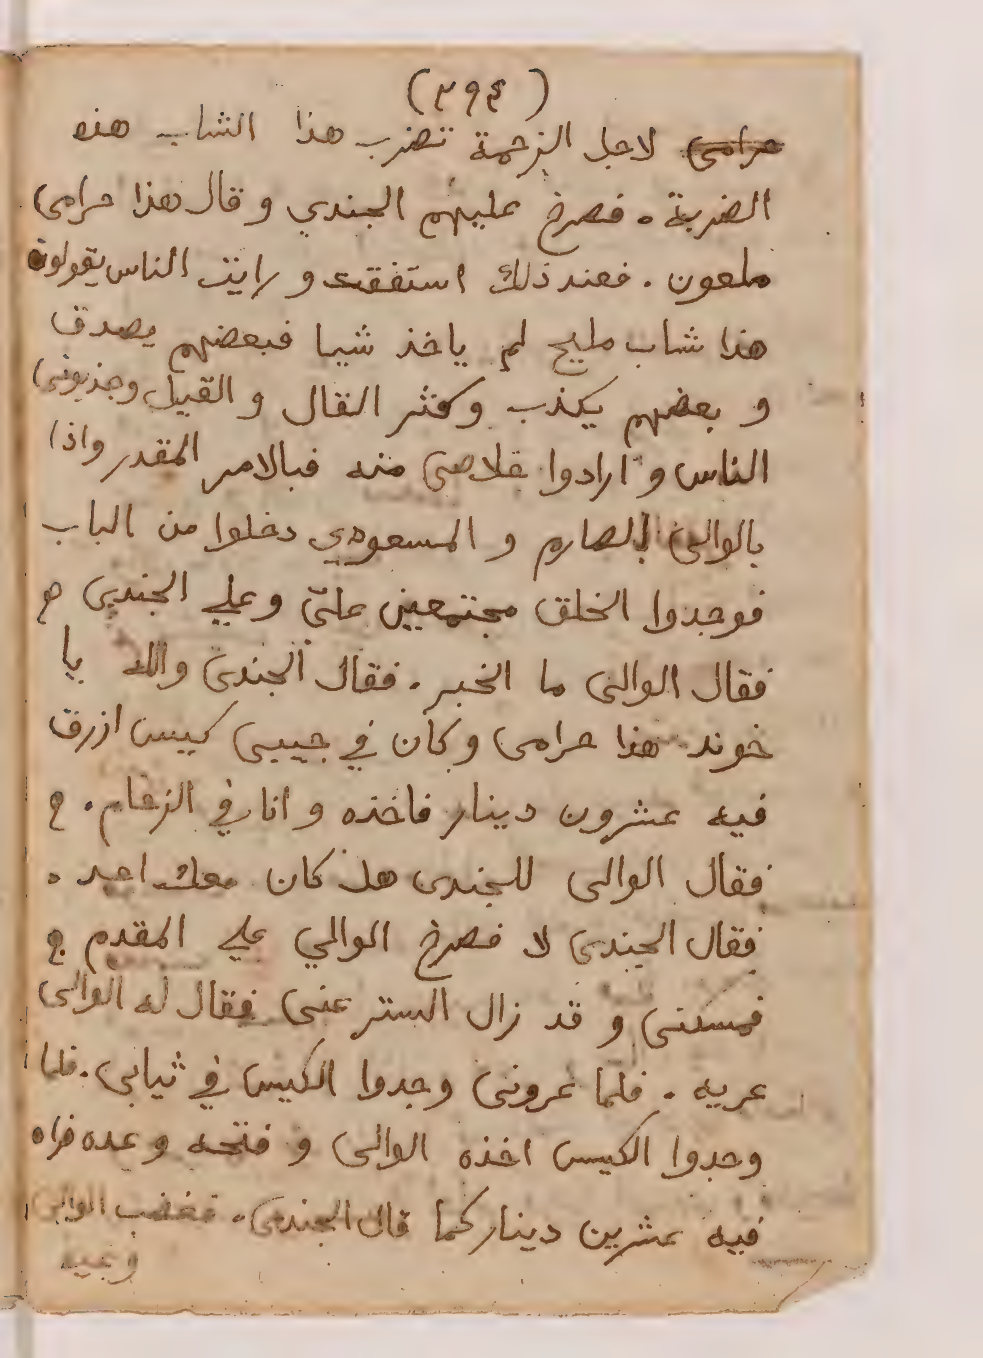 (٣٩٤)
حرامي لاجل الزحمة تضرب هذا الشاب هذه
الضربة . فصرخ عليهم الجندي وقال هذا حرامي
ملعون . فعند ذلك استفقت و رايت الناس يقولون
هذا شاب مليح لم ياخذ شيا فبعضهم يصدق
و بعضهم يكذب وكثر القال و القيل وجذبوني
الناس و ارادوا خلاصي منه فبالامر المقدر واذا
بالوالي الصارم و المسعودي دخلوا من الباب
فوجدوا الخلق مجتمعين عليّ وعلي الجندي
فقال الوالي ما الخبر . فقال الجندي والله يا
خوند هذا حرامي وكان في جيبي كيس ازرق
فيه عشرون دينار فاخذه و انا في الزحام .
فقال الوالي للجندي هل كان معك احد .
فقال الجندي لا فصرخ الوالي علي المقدم
فمسكني و قد زال الستر عني فقال له الوالي
عريه . فلمّا عروني وجدوا الكيس في ثيابي . فلما
وجدوا الكيس اخذه الوالي و فتحه وعده فراه
فيه عشرين دينار كما قال الجندي . فغضب الوالي